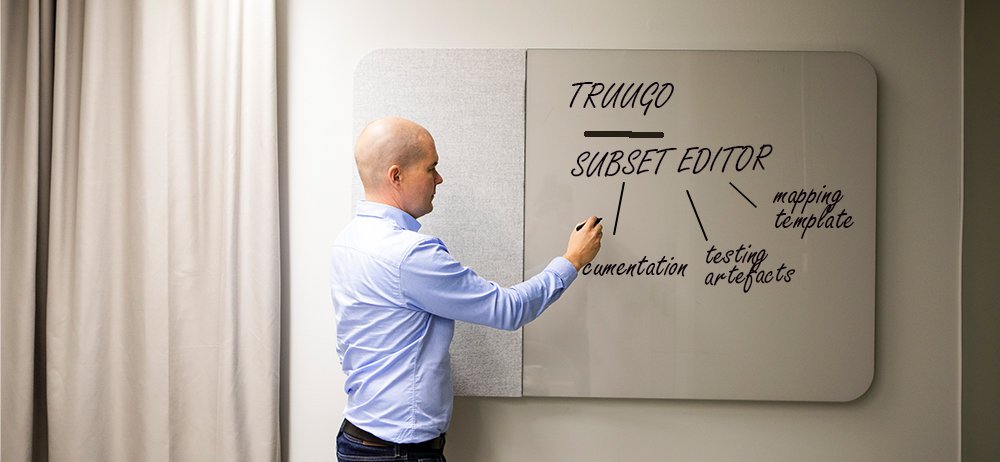 TRUUGO
SUBSET EDITOR
mapping
template
cumentation
testing
artefacts